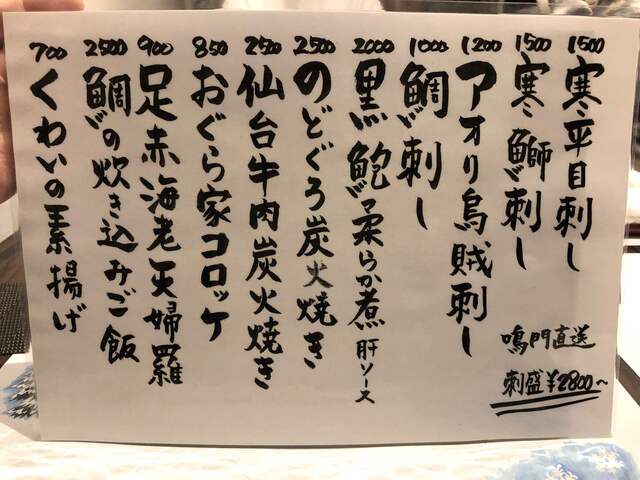 1500 寒平目刺し
1500 寒鰤刺し
1200 アオリ烏賊刺し
1000 鯛刺し
2000 黒鮑柔らか煮 肝ソース
2500 のどぐろ炭火焼き
2500 仙台牛肉炭火焼き
850 おぐら家コロッケ
900 足赤海老天婦羅
2500 鯛の炊き込みご飯
700 くわいの素揚げ
鳴門直送
刺盛¥2800〜